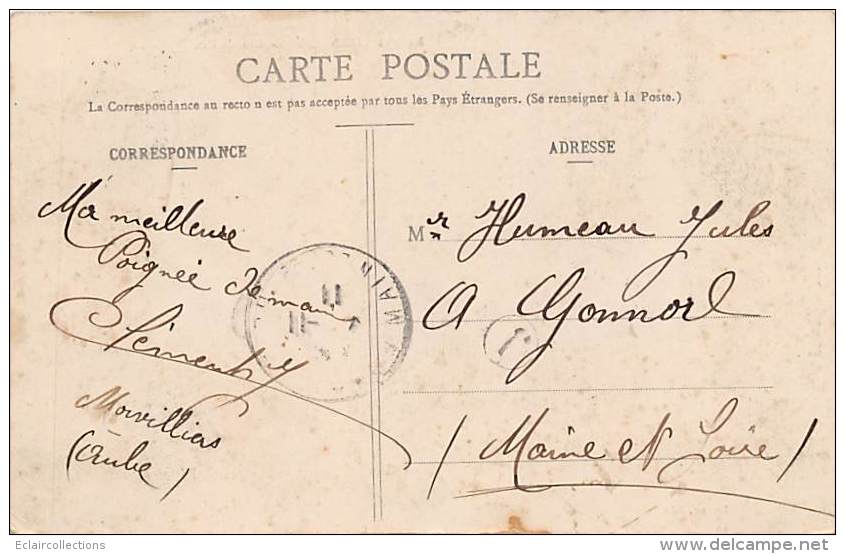 CARTE POSTALE
La Correspondance au recto n est pas acceptée par tous les Pays Étrangers. (Se renseigner à la Poste.)
CORRESPONDANCE
Ma meilleure
Poignée de main
Clément
Morvilliers
(Aube)
ADRESSE
Mr Humeau Jules
A Gonnord
J
(Maine et Loire)
MAIN
11
11
Eclaircollections
delcampe.net